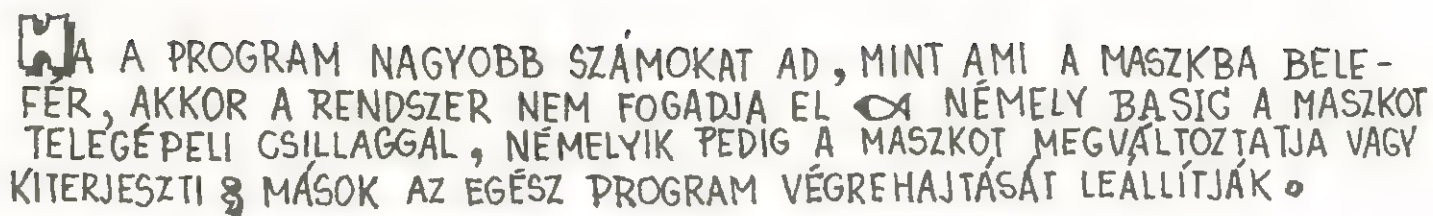 HA A PROGRAM NAGYOBB SZÁMOKAT AD, MINT AMI A MASZKBA BELE-
FÉR, AKKOR A RENDSZER NEM FOGADJA EL NÉMELY BASIC A MASZKOT
TELEGÉPELI CSILLAGGAL, NÉMELYIK PEDIG A MASZKOT MEGVÁLTOZTATJA VAGY
KITERJESZTI MÁSOK AZ EGÉSZ PROGRAM VÉGREHAJTÁSÁT LEÁLLÍTJÁK.